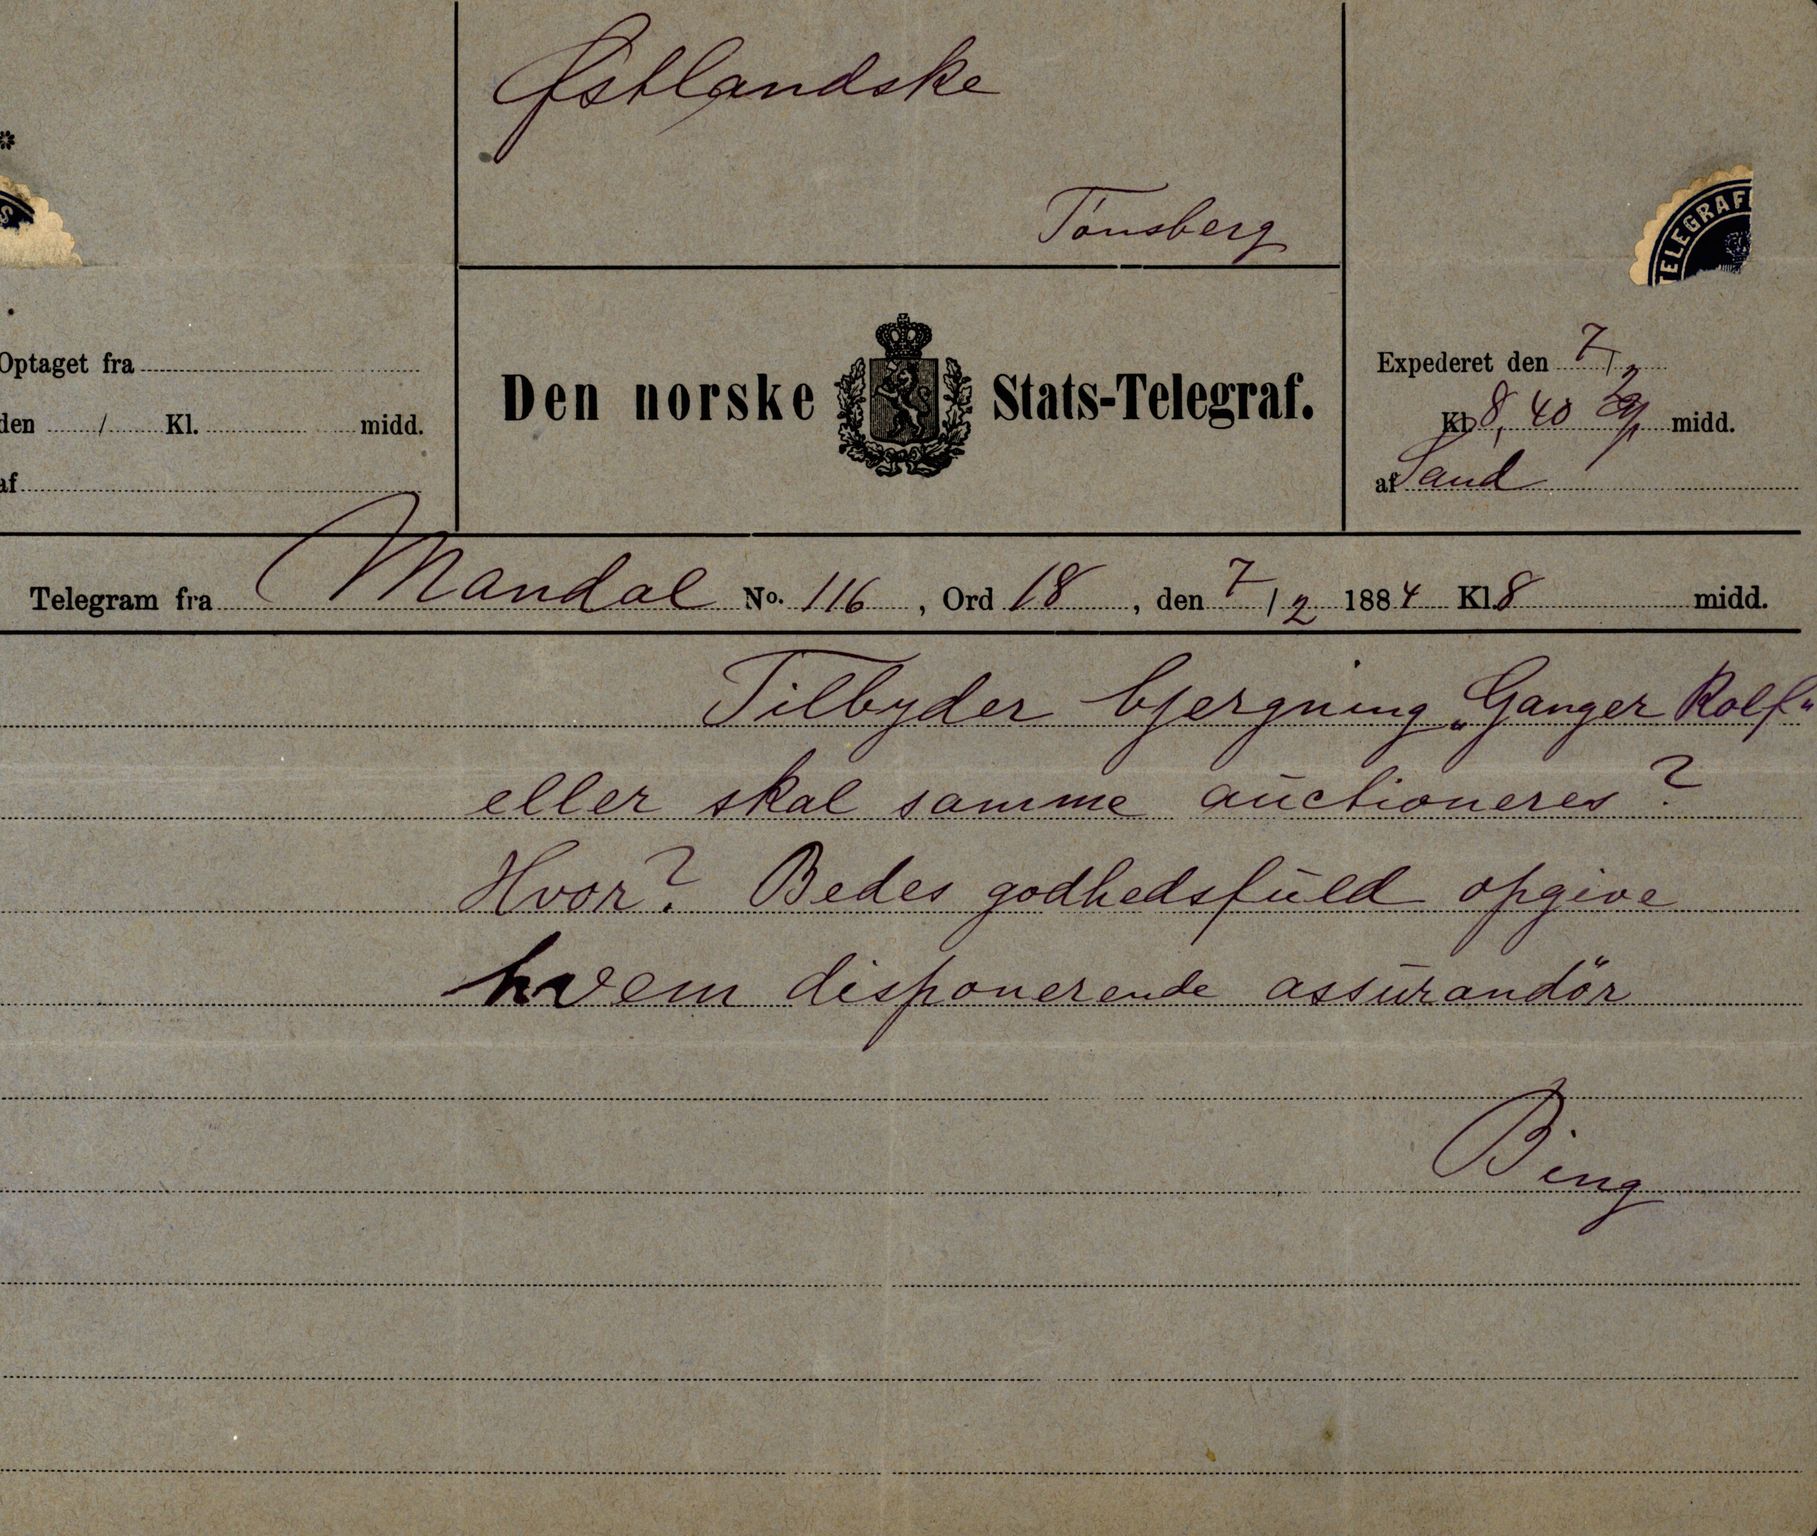 Østlandske
Tönsberg
TELEGRAF
S
Optaget fra
den / Kl. midd.
af
Den norske Stats-Telegraf.
Expederet den 7/2
Kl 8,40 midd.
af Sand
Telegram fra Mandal No. 116, Ord 18, den 7/2 1884 Kl. 8 midd.
Tilbyder bjergning „Ganger Rolf"
eller skal samme auctioneres?
Hvor? Bedes godhedsfuld opgive
hvem disponerende assurandör
Bing